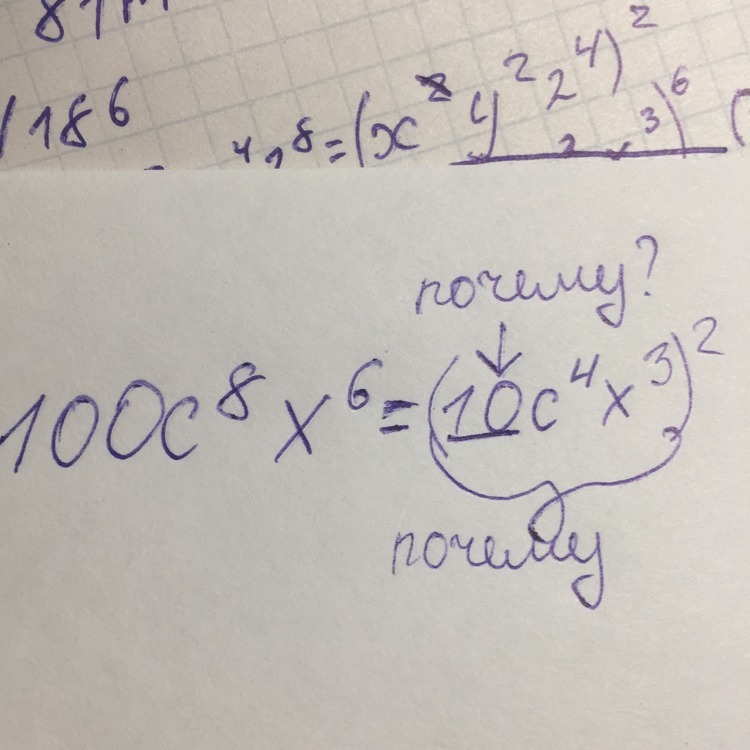 18⁶
⁸=(x² y² z⁴)²
³)⁶
почему?
100c⁸x⁶=(10c⁴x³)²
почему